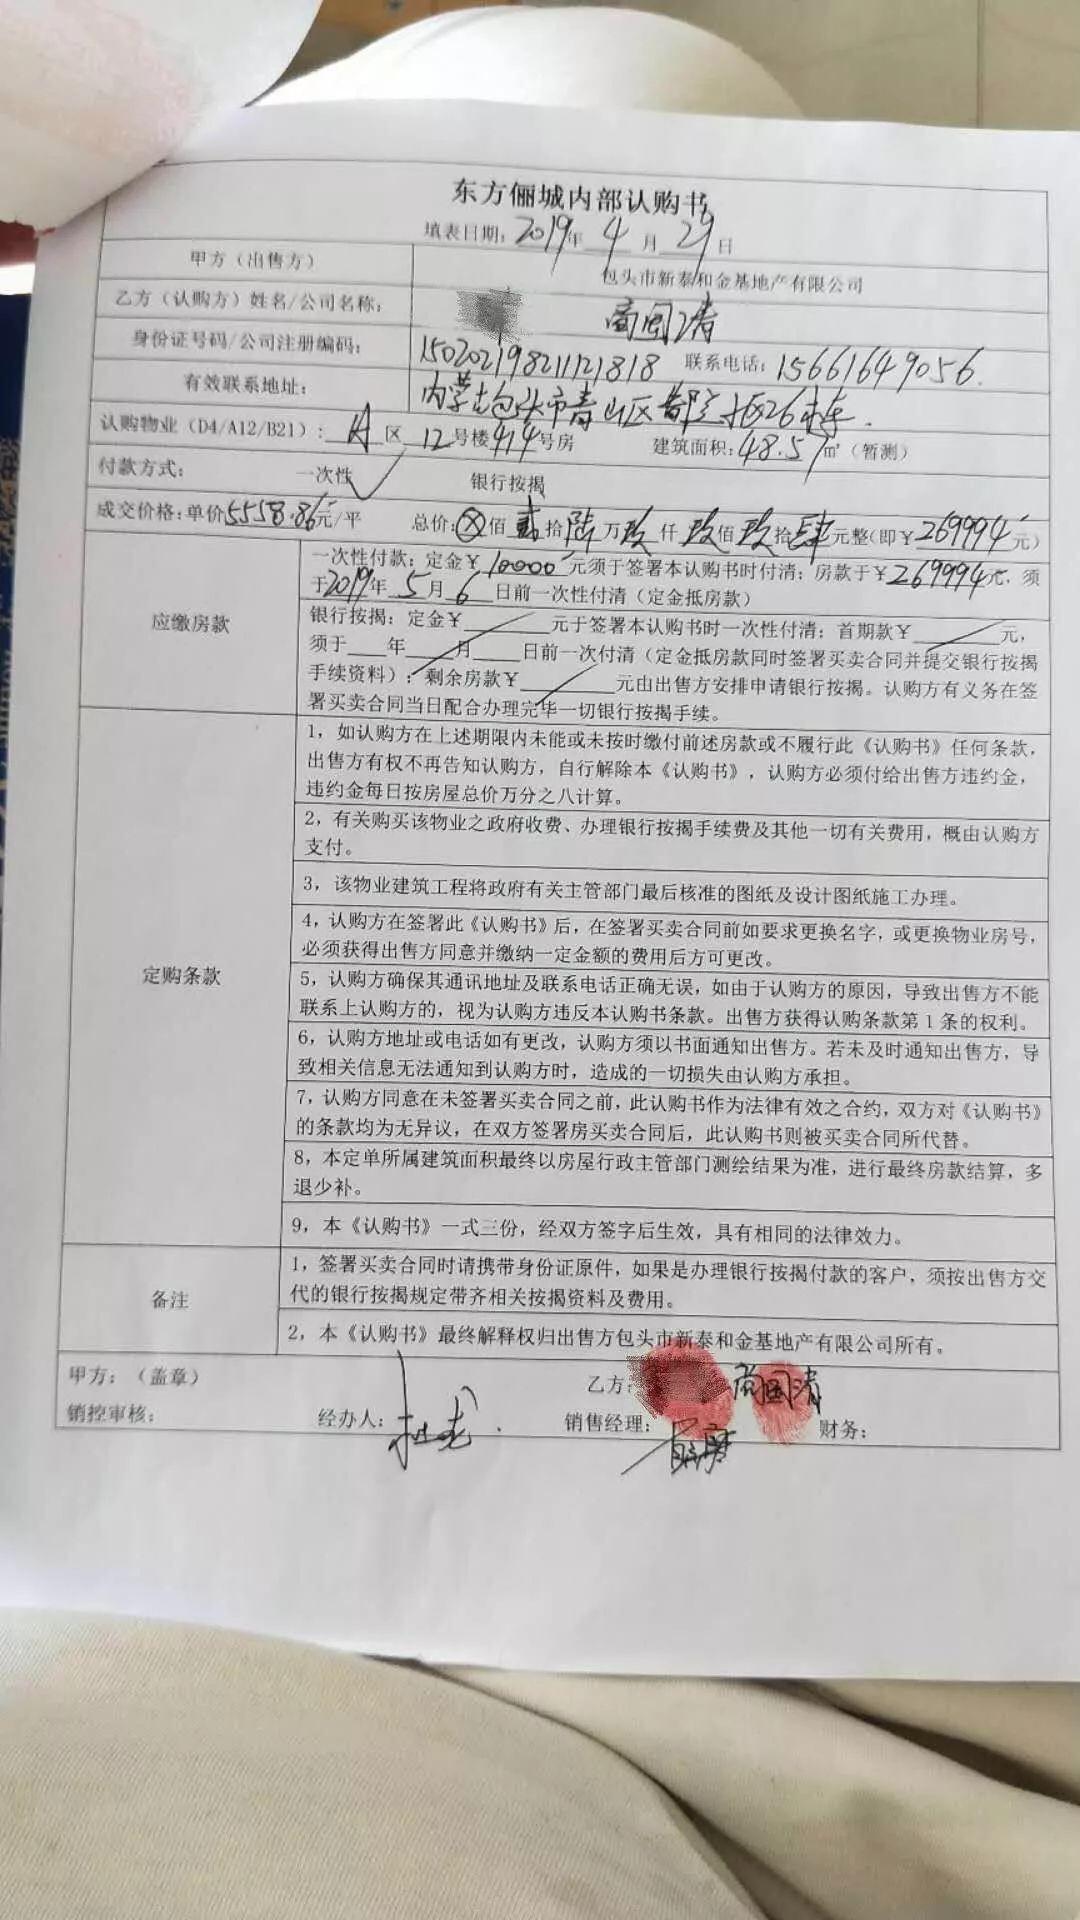 东方俪城内部认购书
填表日期：2019年 4 月 29 日
甲方（出售方） 包头市新泰和金基地产有限公司
乙方（认购方）姓名/公司名称： 清
身份证号码/公司注册编码： 150202198211121818 联系电话：15661649056.
有效联系地址： 内蒙古包头市青山区 26
认购物业（D4/A12/B21）： A 区 12号楼414号房 建筑面积：48.57㎡（暂测）
付款方式： 一次性 ✓ 银行按揭
成交价格：单价5558.86元/平 总价：⊗佰贰拾陆万玖仟玖佰玖拾肆元整（即￥269994元）
应缴房款
一次性付款：定金￥10000元须于签署本认购书时付清；房款于￥269994元，须
于2019年 5 月 6 日前一次性付清（定金抵房款）
银行按揭：定金￥____元于签署本认购书时一次性付清；首期款￥____元，
须于___年___月___日前一次付清（定金抵房款同时签署买卖合同并提交银行按揭
手续资料）；剩余房款￥____元由出售方安排申请银行按揭。认购方有义务在签
署买卖合同当日配合办理完毕一切银行按揭手续。
定购条款
1，如认购方在上述期限内未能或未按时缴付前述房款或不履行此《认购书》任何条款，
出售方有权不再告知认购方，自行解除本《认购书》，认购方必须付给出售方违约金，
违约金每日按房屋总价万分之八计算。
2，有关购买该物业之政府收费、办理银行按揭手续费及其他一切有关费用，概由认购方
支付。
3，该物业建筑工程将政府有关主管部门最后核准的图纸及设计图纸施工办理。
4，认购方在签署此《认购书》后，在签署买卖合同前如要求更换名字，或更换物业房号，
必须获得出售方同意并缴纳一定金额的费用后方可更改。
5，认购方确保其通讯地址及联系电话正确无误，如由于认购方的原因，导致出售方不能
联系上认购方的，视为认购方违反本认购书条款。出售方获得认购条款第1条的权利。
6，认购方地址或电话如有更改，认购方须以书面通知出售方。若未及时通知出售方，导
致相关信息无法通知到认购方时，造成的一切损失由认购方承担。
7，认购方同意在未签署买卖合同之前，此认购书作为法律有效之合约，双方对《认购书》
的条款均为无异议，在双方签署房买卖合同后，此认购书则被买卖合同所代替。
8，本定单所属建筑面积最终以房屋行政主管部门测绘结果为准，进行最终房款结算，多
退少补。
9，本《认购书》一式三份，经双方签字后生效，具有相同的法律效力。
备注
1，签署买卖合同时请携带身份证原件，如果是办理银行按揭付款的客户，须按出售方交
代的银行按揭规定带齐相关按揭资料及费用。
2，本《认购书》最终解释权归出售方包头市新泰和金基地产有限公司所有。
甲方：（盖章） 乙方： 清
销控审核： 经办人： 销售经理： 财务：